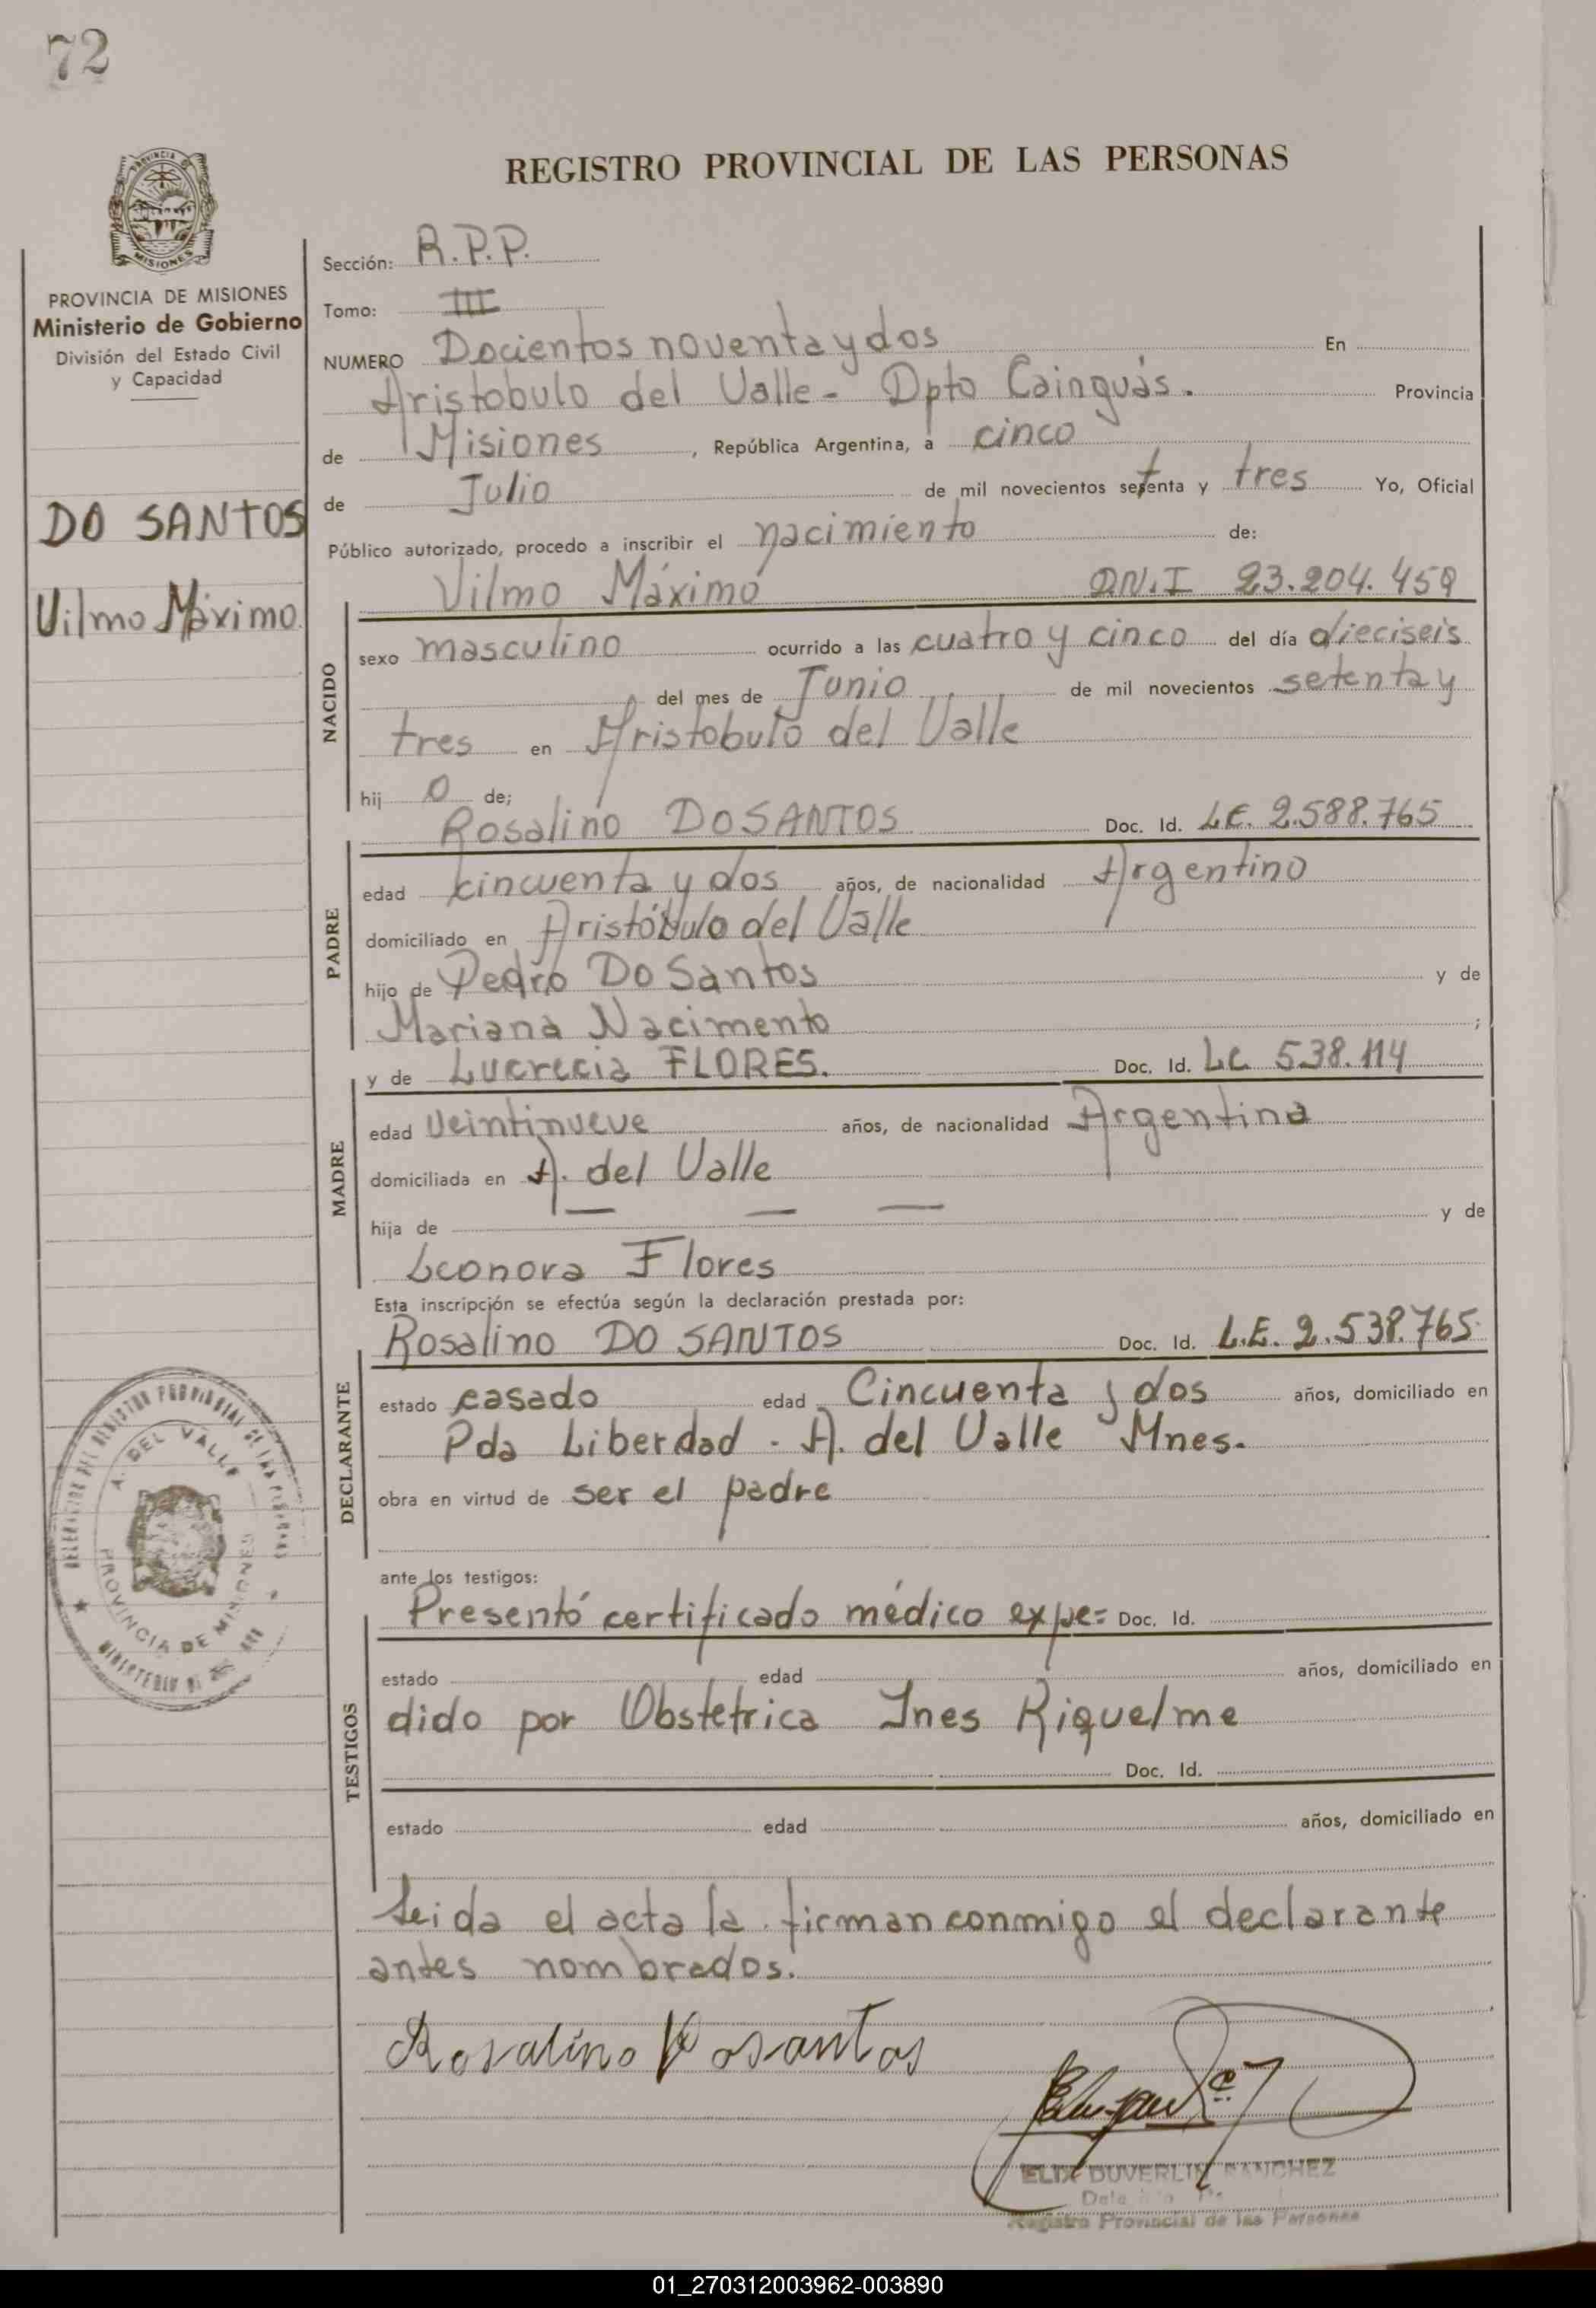 72
REGISTRO PROVINCIAL DE LAS PERSONAS
PROVINCIA DE
MISIONES
PROVINCIA DE MISIONES
Ministerio de Gobierno
División del Estado Civil
y Capacidad
DO SANTOS
Vilmo Máximo
Sección: R.P.P.
Tomo: III
NUMERO Docientos noventa y dos En
Aristobulo del Valle - Dpto Cainguás. Provincia
de Misiones, República Argentina, a cinco
de Julio de mil novecientos setenta y tres Yo, Oficial
Público autorizado, procedo a inscribir el nacimiento de:
Vilmo Máximo D.N.I 23.204.459
NACIDO
sexo masculino ocurrido a las cuatro y cinco del día dieciseis
del mes de Junio de mil novecientos setenta y
tres en Aristobulo del Valle
hij o de;
Rosalino DO SANTOS Doc. Id. L.E. 2.588.765
PADRE
edad cincuenta y dos años, de nacionalidad Argentino
domiciliado en Aristóbulo del Valle
hijo de Pedro Do Santos y de
Mariana Nacimento ;
y de Lucrecia FLORES. Doc. Id. L.C. 538.114
MADRE
edad veintinueve años, de nacionalidad Argentina
domiciliada en A. del Valle
hija de — — — y de
Leonora Flores
Esta inscripción se efectúa según la declaración prestada por:
Rosalino DO SANTOS Doc. Id. L.E. 2.538.765
DECLARANTE
estado casado edad Cincuenta y dos años, domiciliado en
Pda Liberdad - A. del Valle Mnes.
obra en virtud de ser el padre
ante los testigos:
Presentó certificado médico expe= Doc. Id.
TESTIGOS
estado edad años, domiciliado en
dido por Obstetrica Ines Riquelme
Doc. Id.
estado edad años, domiciliado en
Leida el acta la firman conmigo el declarante
antes nombrados.
Rosalino Dosantos
ELIX DUVERLIN SANCHEZ
Registro Provincial de las Personas
A. DEL VALLE
PROVINCIA DE
01_270312003962-003890